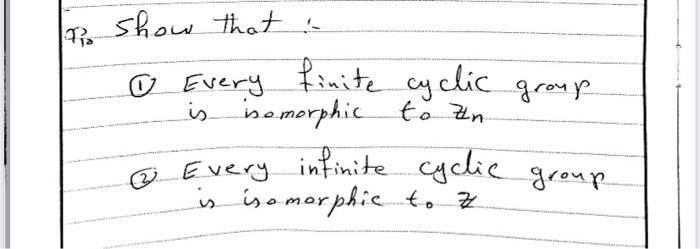 Show that :-
① Every finite cyclic group
is isomorphic to Zn
② Every infinite cyclic group
is isomorphic to Z